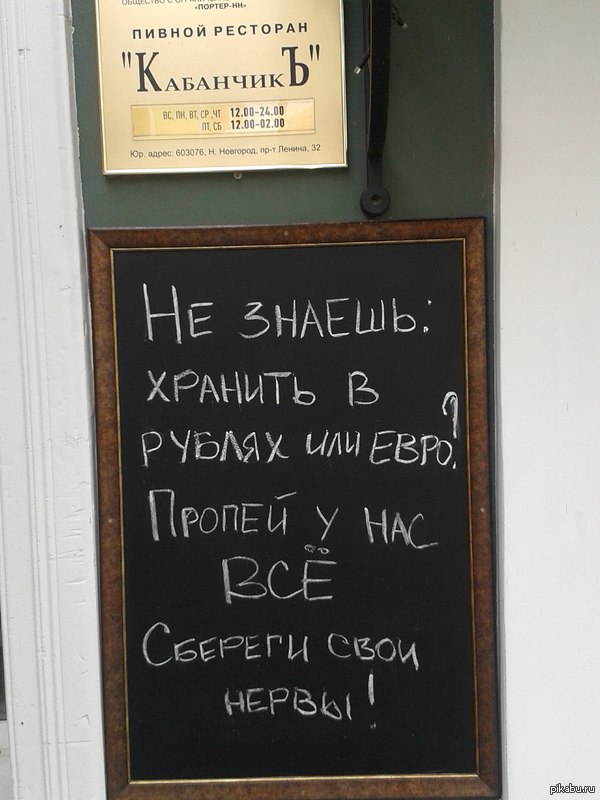 ОБЩЕСТВО С ОГРАНИЧЕН
«ПОРТЕР-НН»
ПИВНОЙ РЕСТОРАН
"КАБАНЧИКЪ"
ВС, ПН, ВТ, СР, ЧТ 12.00-24.00
ПТ, СБ 12.00-02.00
Юр. адрес: 603076, Н. Новгород, пр-т Ленина, 32
НЕ ЗНАЕШЬ:
ХРАНИТЬ В
РУБЛЯХ ИЛИ ЕВРО?
ПРОПЕЙ У НАС
ВСЁ
СБЕРЕГИ СВОИ
НЕРВЫ!
pikabu.ru